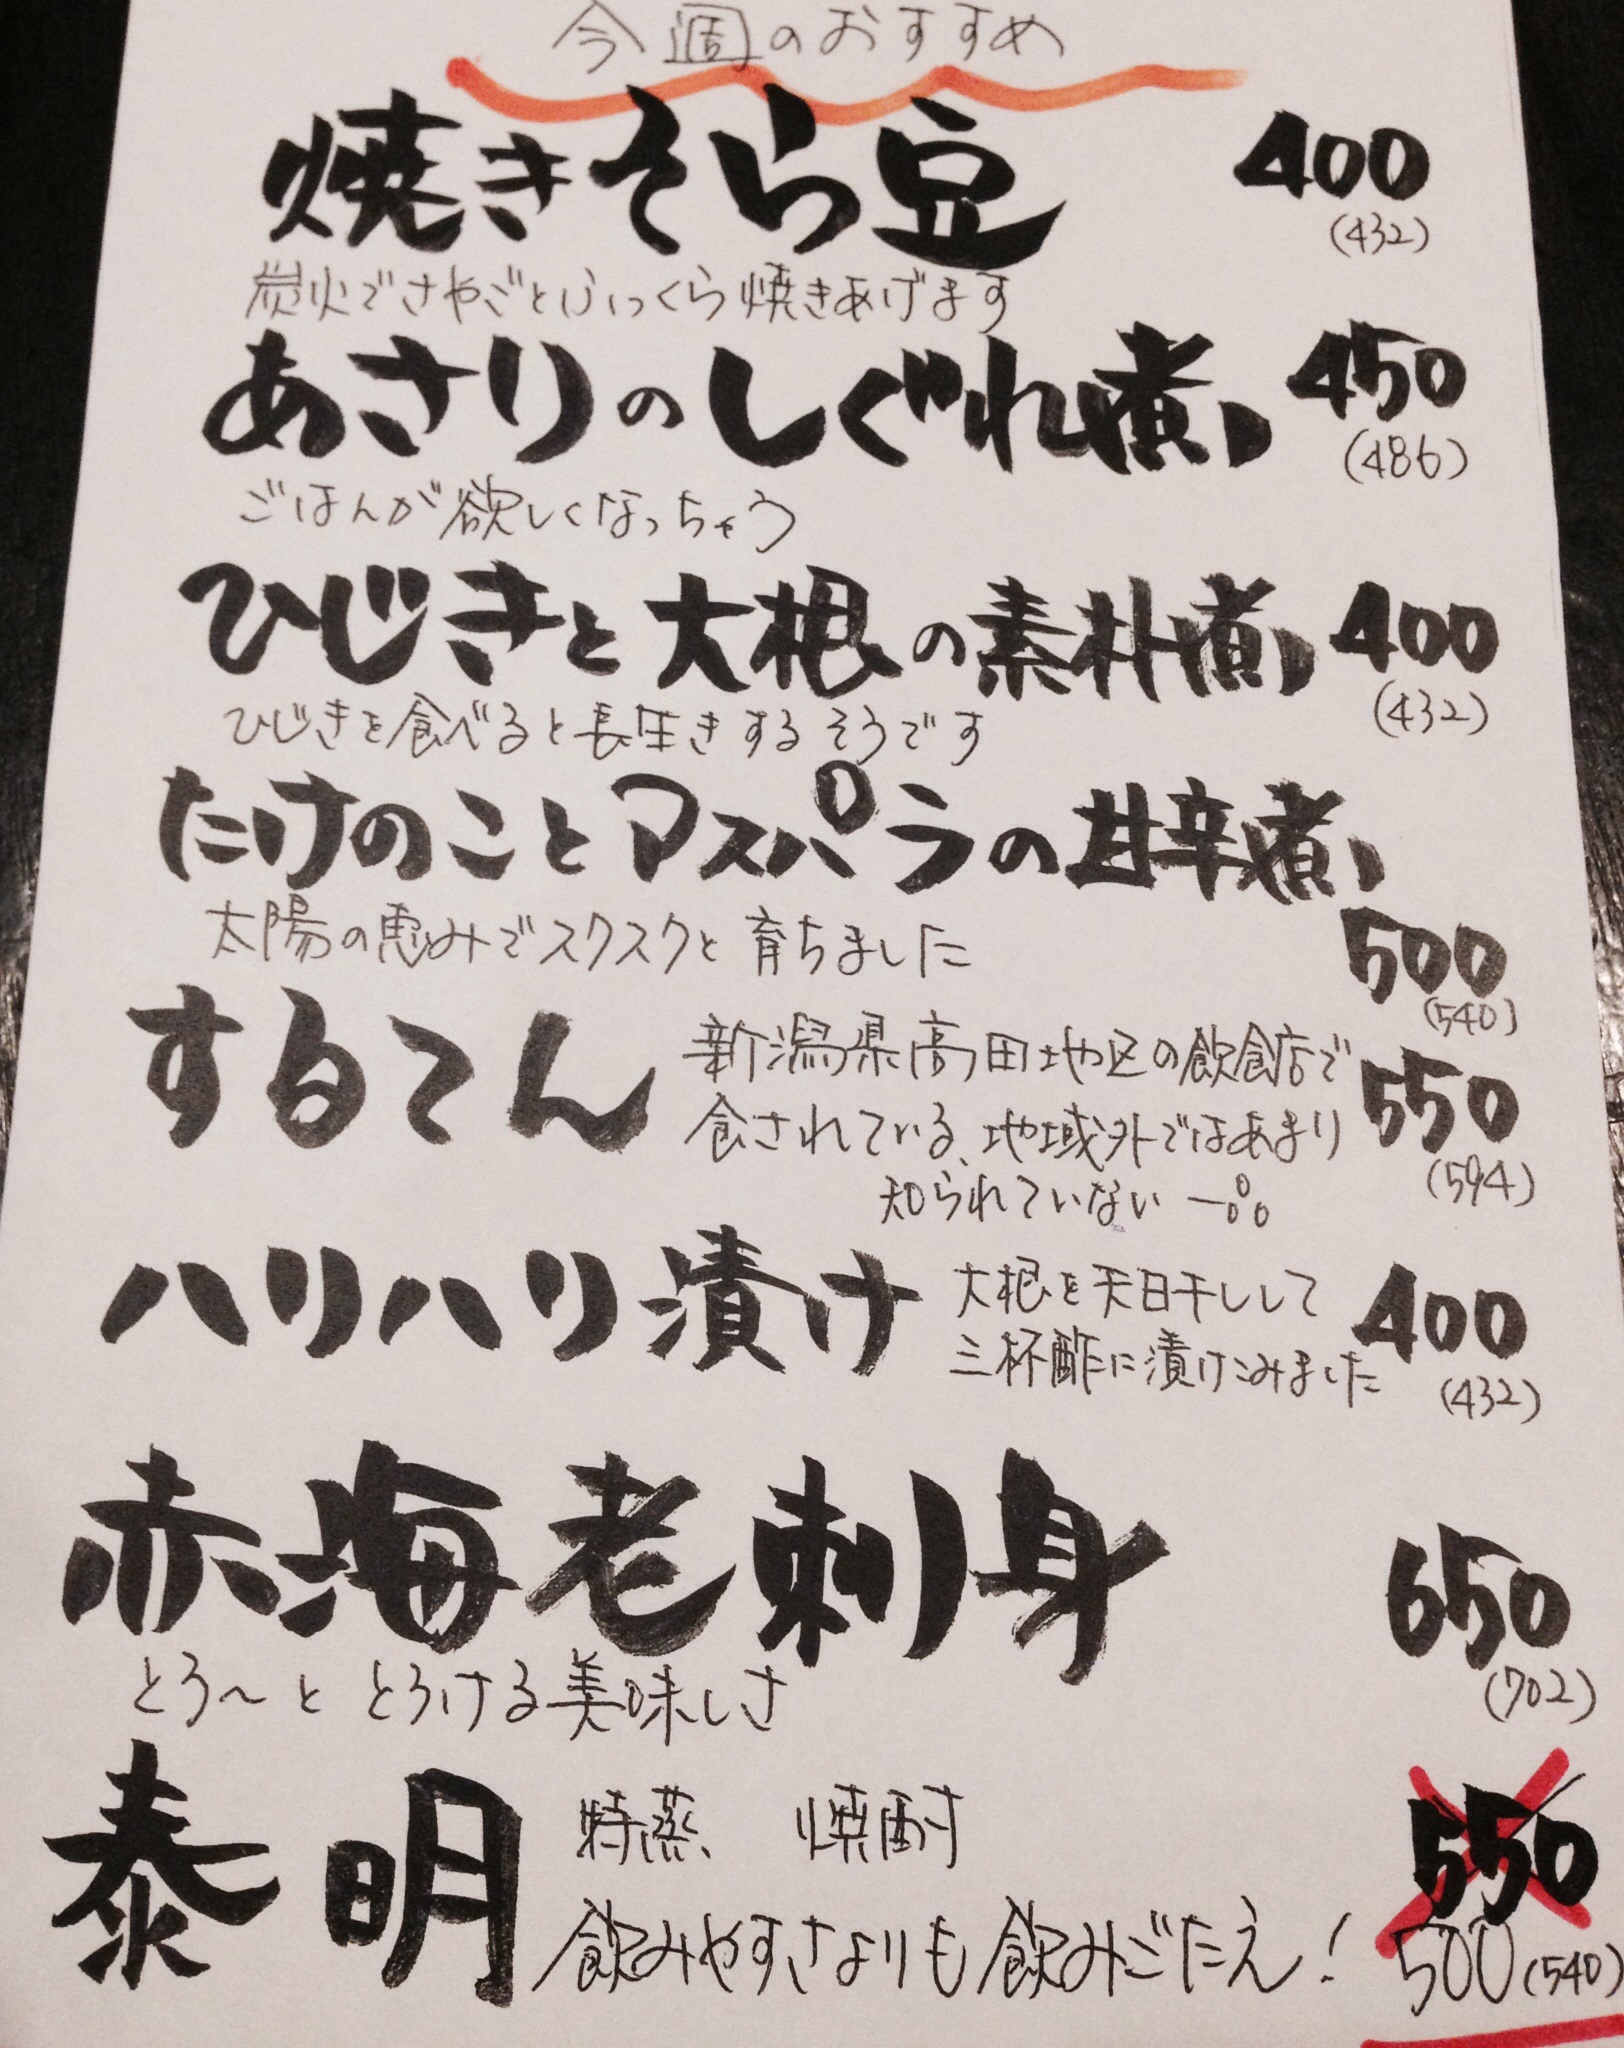 今週のおすすめ
焼きそら豆 400
(432)
炭火でさやごとふっくら焼きあげます
あさりのしぐれ煮 450
(486)
ごはんが欲しくなっちゃう
ひじきと大根の素朴煮 400
(432)
ひじきを食べると長生きするそうです
たけのことアスパラの甘辛煮
500
(540)
太陽の恵みでスクスクと育ちました
するてん 550
(594)
新潟県高田地区の飲食店で
食されている、地域外ではあまり
知られていない一品
ハリハリ漬け 400
(432)
大根を天日干しして
三杯酢に漬けこみました
赤海老刺身 650
(702)
とろ〜ととろける美味しさ
泰明 特蒸 焼酎 550
飲みやすさよりも飲みごたえ! 500(540)